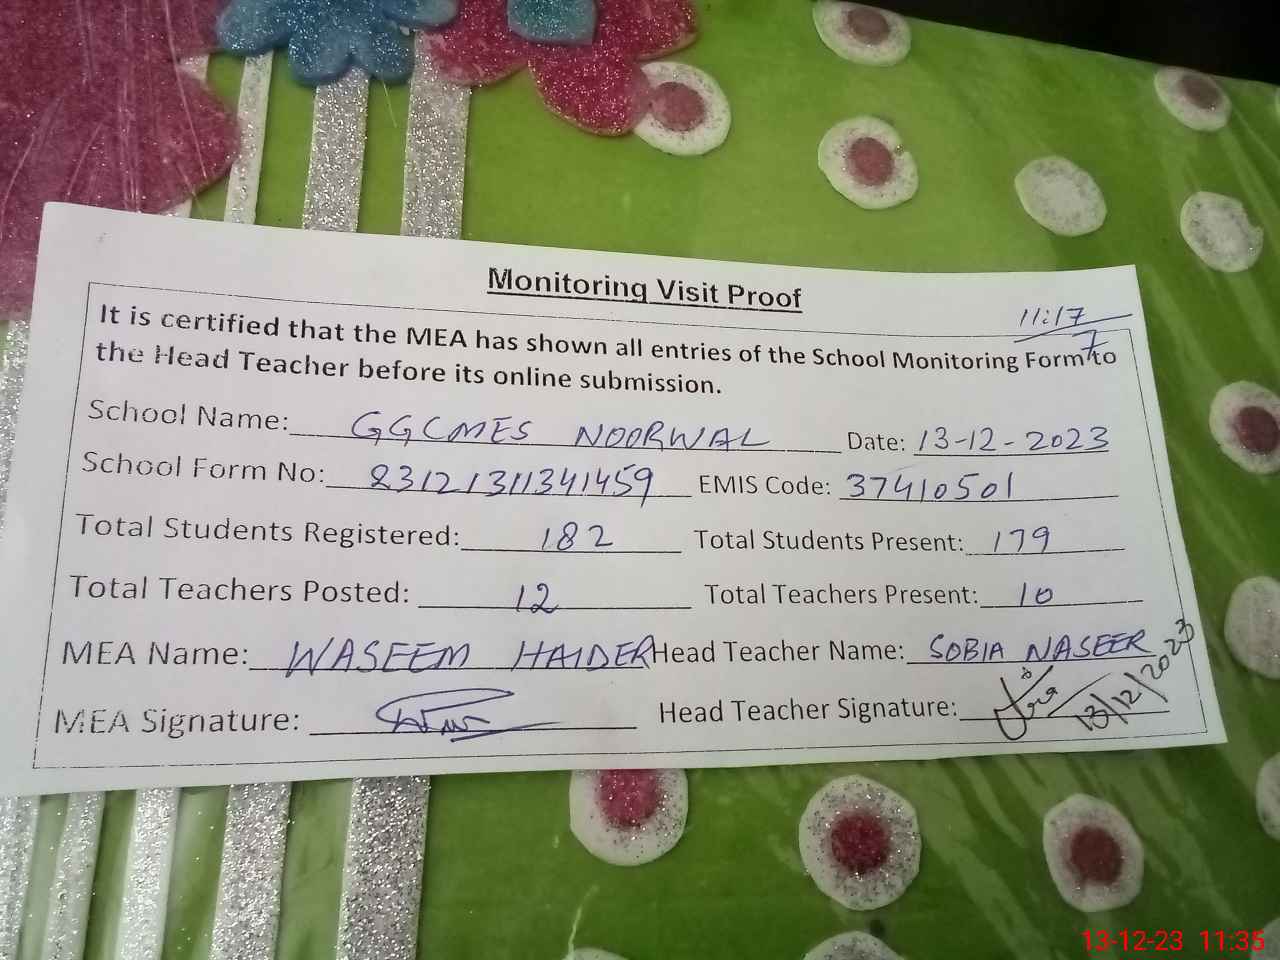 Monitoring Visit Proof
11:17
7
It is certified that the MEA has shown all entries of the School Monitoring Form to
the Head Teacher before its online submission.
School Name: GGCMES NOORWAL Date: 13-12-2023
School Form No: 83121311341459 EMIS Code: 37410501
Total Students Registered: 182 Total Students Present: 179
Total Teachers Posted: 12 Total Teachers Present: 10
MEA Name: WASEEM HAIDER Head Teacher Name: SOBIA NASEER
MEA Signature: Head Teacher Signature: 13/12/2023
13-12-23 11:35